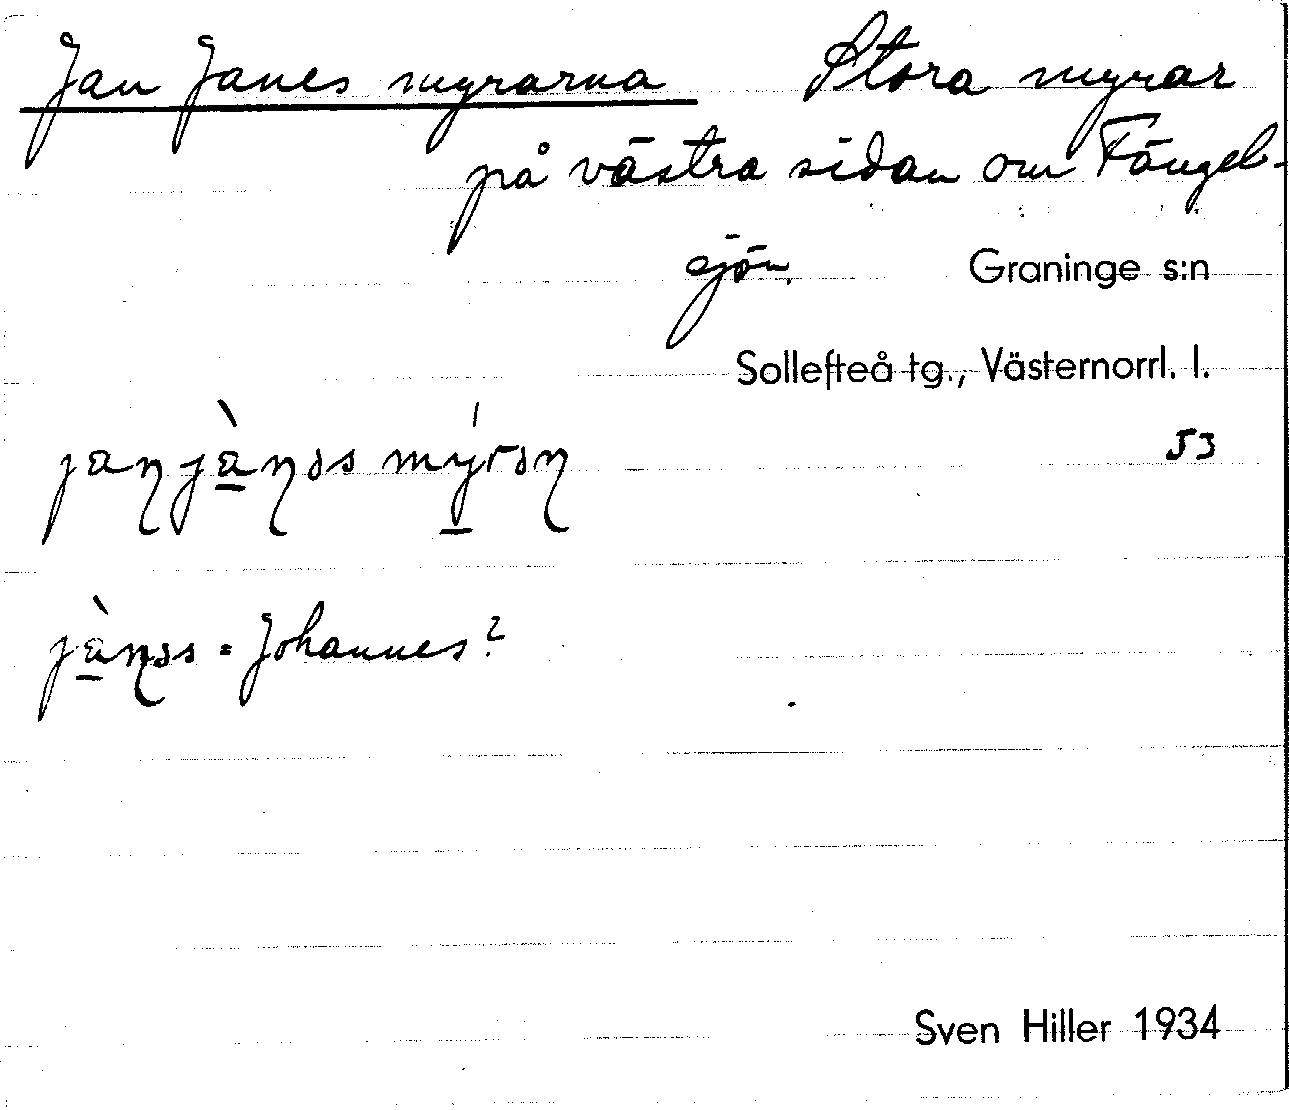 Jan Janes myrarna Stora myrar
på västra sidan om Fängel-
sjön. Graninge s:n
Sollefteå tg., Västernorrl. l.
53
jànəs = Johannes?
Sven Hiller 1934